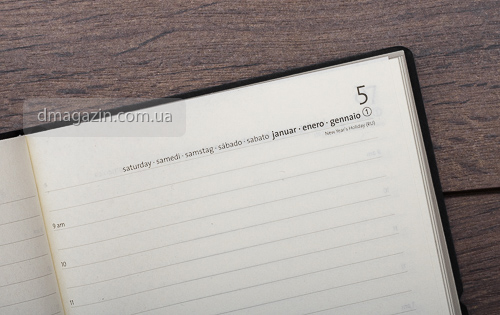 dmagazin.com.ua
5
saturday · samedi · samstag · sábado · sabato januar · enero · gennaio 1
New Year's Holiday (RU)
9 am
10
11